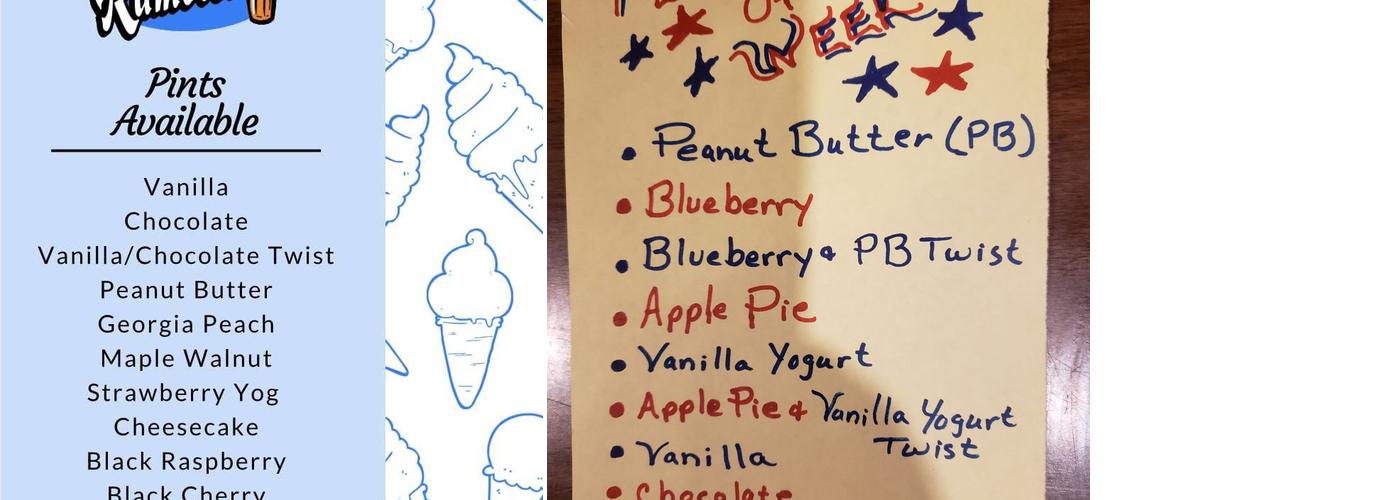 Pints
Available
Vanilla
Chocolate
Vanilla/Chocolate Twist
Peanut Butter
Georgia Peach
Maple Walnut
Strawberry Yog
Cheesecake
Black Raspberry
Black Cherry
WEEK
• Peanut Butter (PB)
• Blueberry
• Blueberry & PB Twist
• Apple Pie
• Vanilla Yogurt
• Apple Pie & Vanilla Yogurt
Twist
• Vanilla
• Chocolate